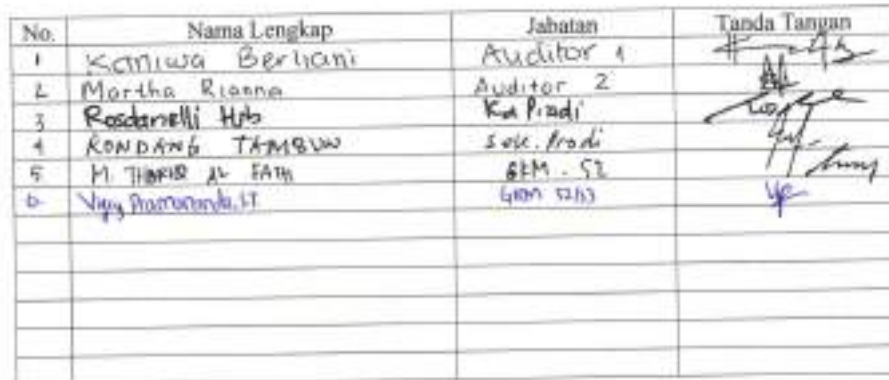 No. Nama Lengkap Jabatan Tanda Tangan
1 Kaniwa Berliani Auditor 1
2 Martha Rianna Auditor 2
3 Rosdanelli Hsb Ka Prodi
4 RONDANG TAMBUN Sek. Prodi
5 M. THARIQ AL FATH GKM - S2
6 GKM S2/S3